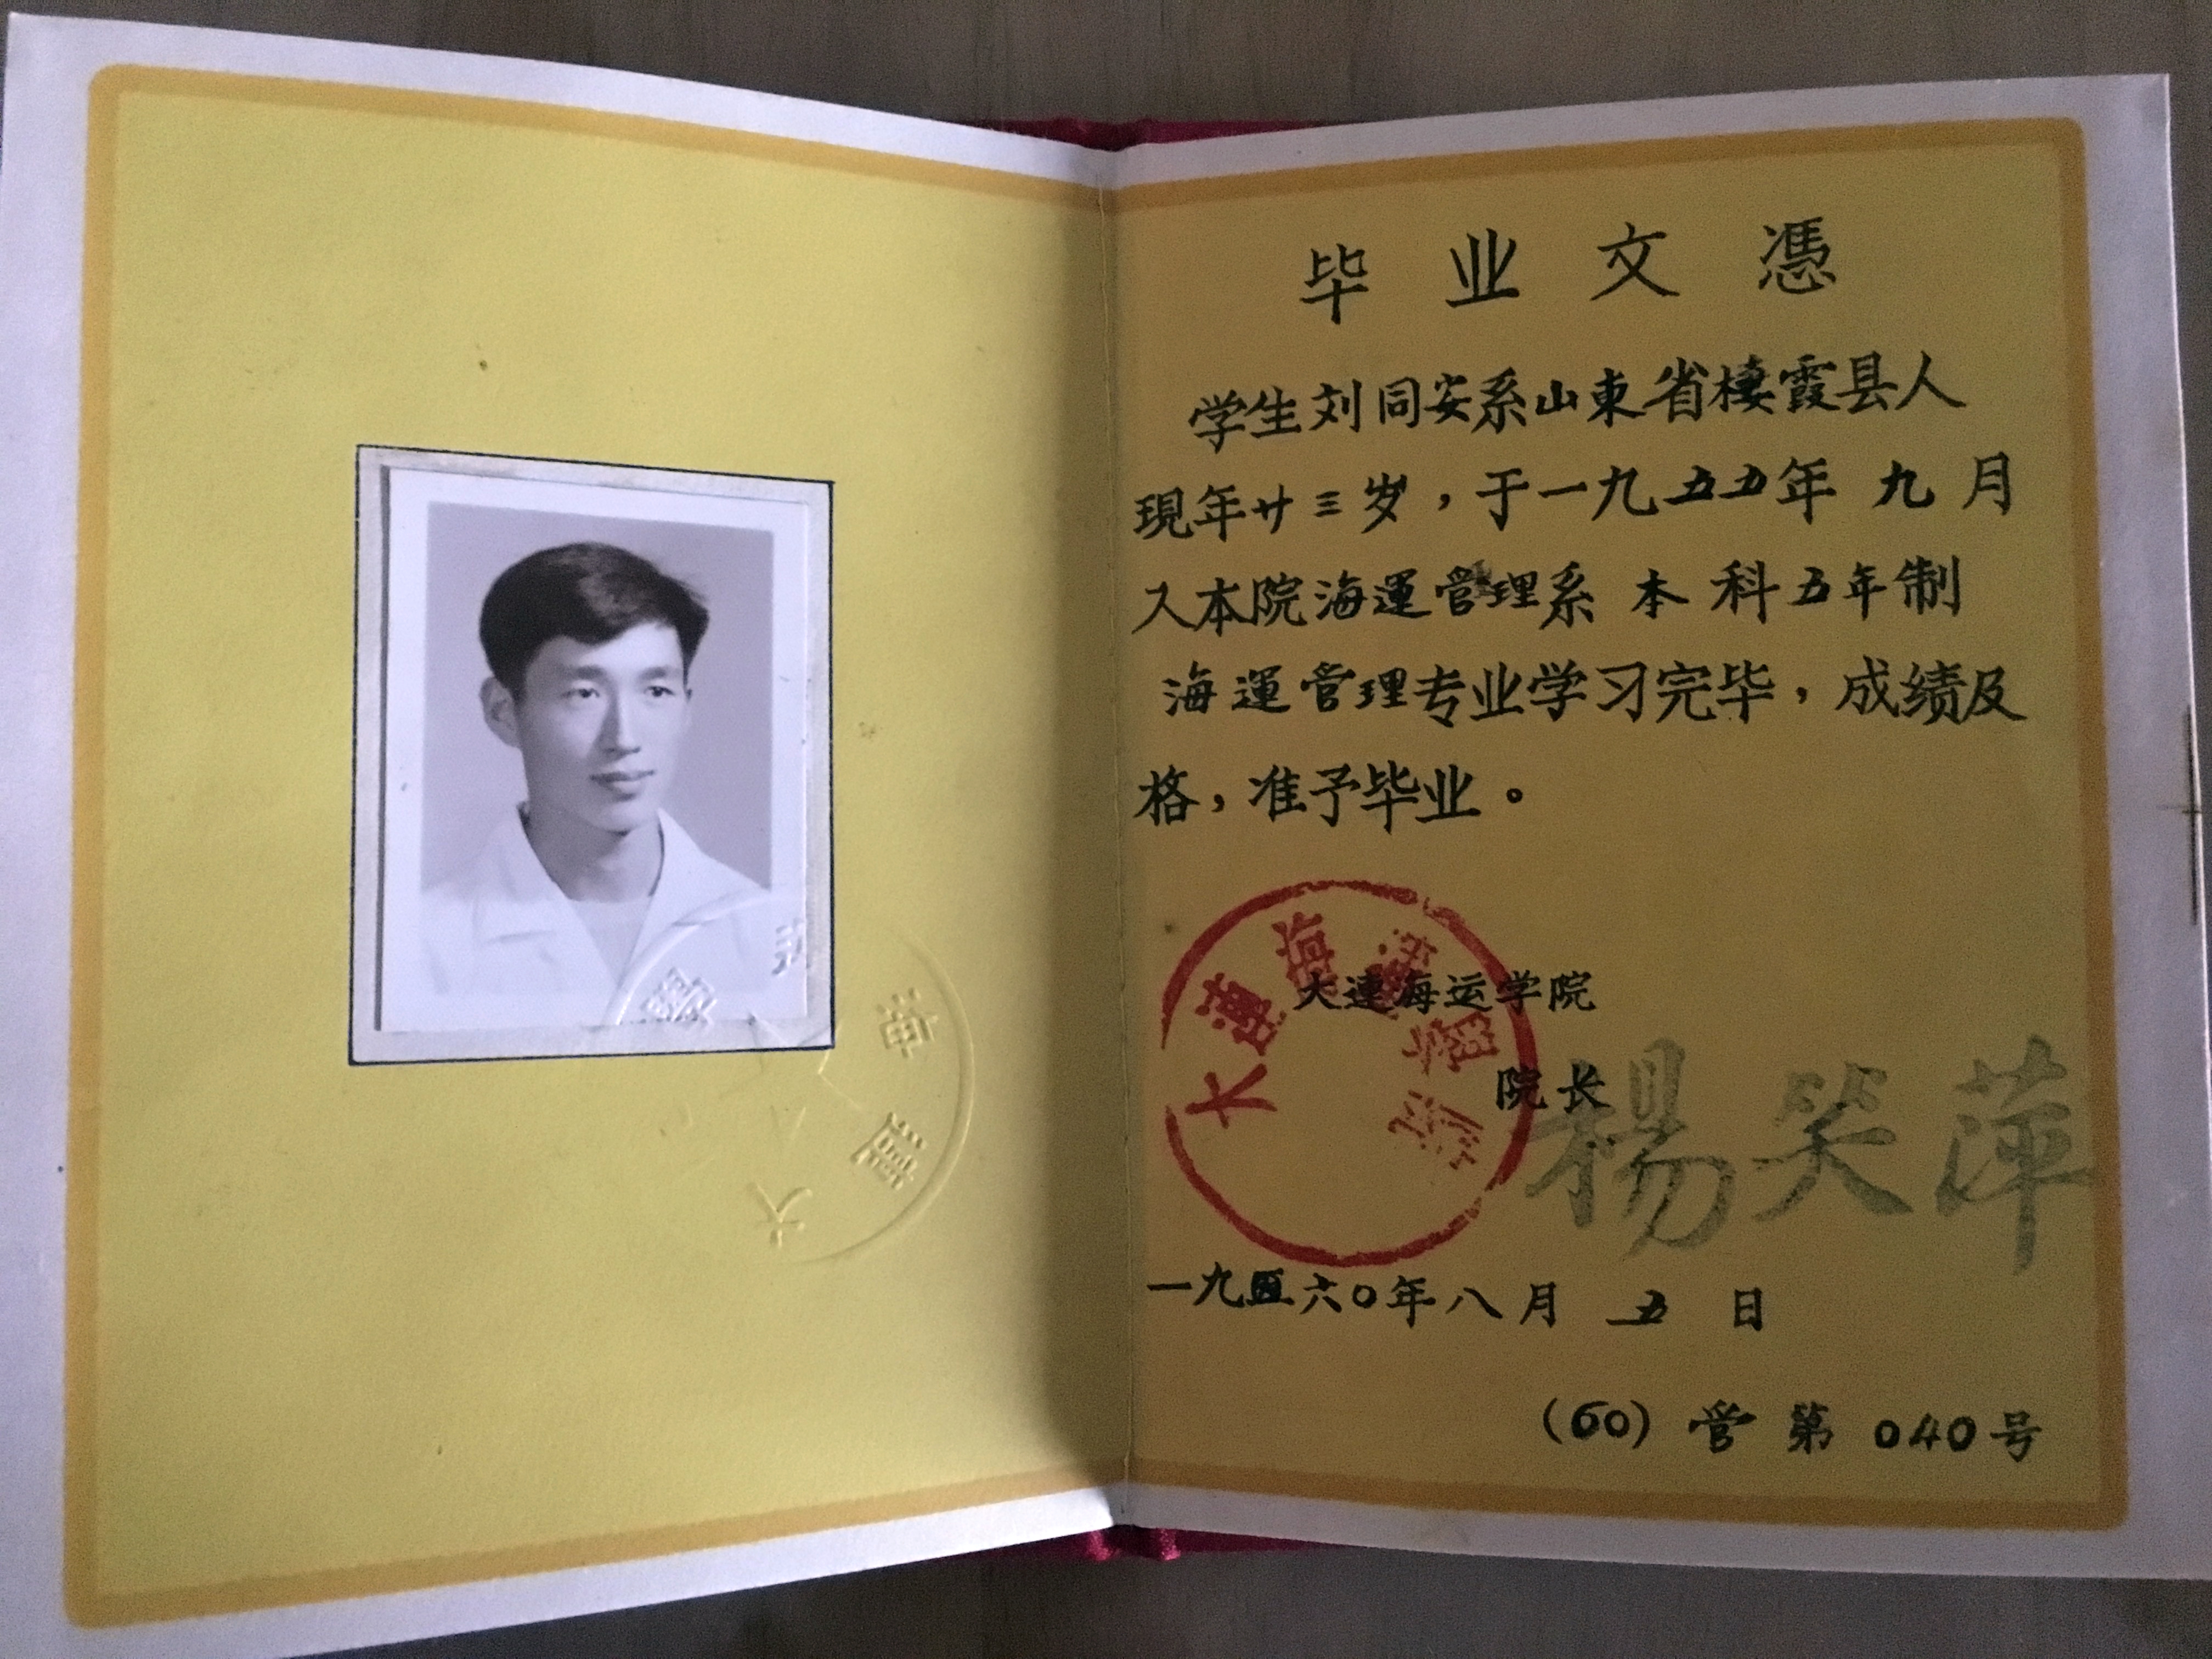 毕业文憑
学生刘同安系山東省棲霞县人
現年廿三岁，于一九五五年九月
入本院海運管理系本科五年制
海運管理专业学习完毕，成绩及
格，准予毕业。
大連海運學院
大連海运学院
院长 楊笑萍
一九五六〇年八月五日
(60) 管第040号